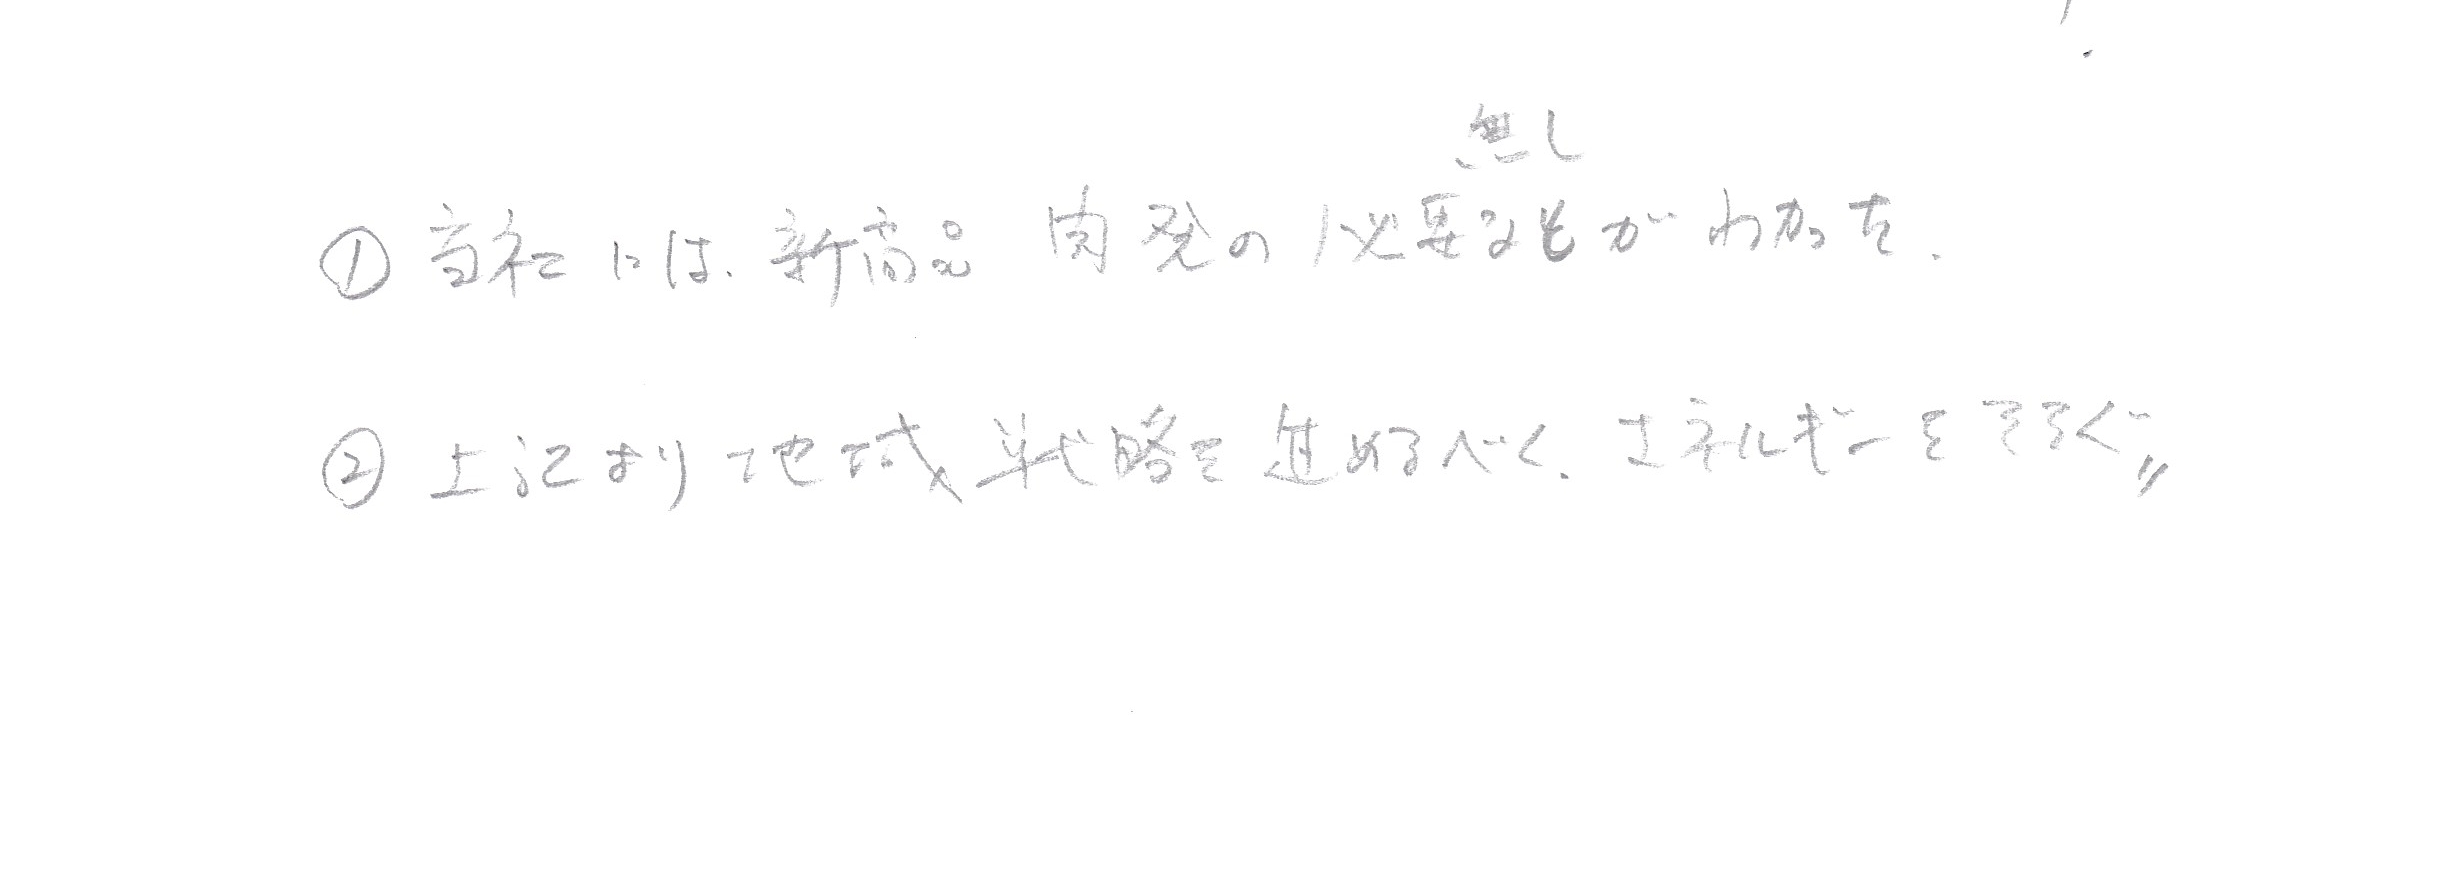 無し
① 当社には、新商品 開発の必要なもがわかった。
② 上記より地域戦略を進めるべく、エネルギーをそそぐ〃